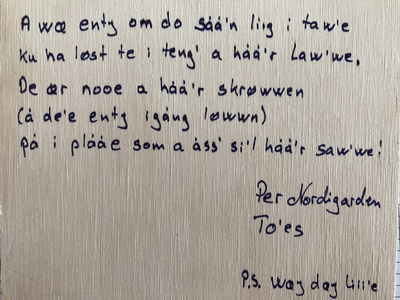 A wæ enty om do sáá'n liig i taw'e
ku ha løst te i teng' a háá'r Law'we.
De ær nooe a háá'r skrøwwen
(á de'e enty igáng løwwn)
pá i plááe som a áss' si'l háá'r saw'we!
Per Nordigarden
To'es
P.S. Way day liii'e